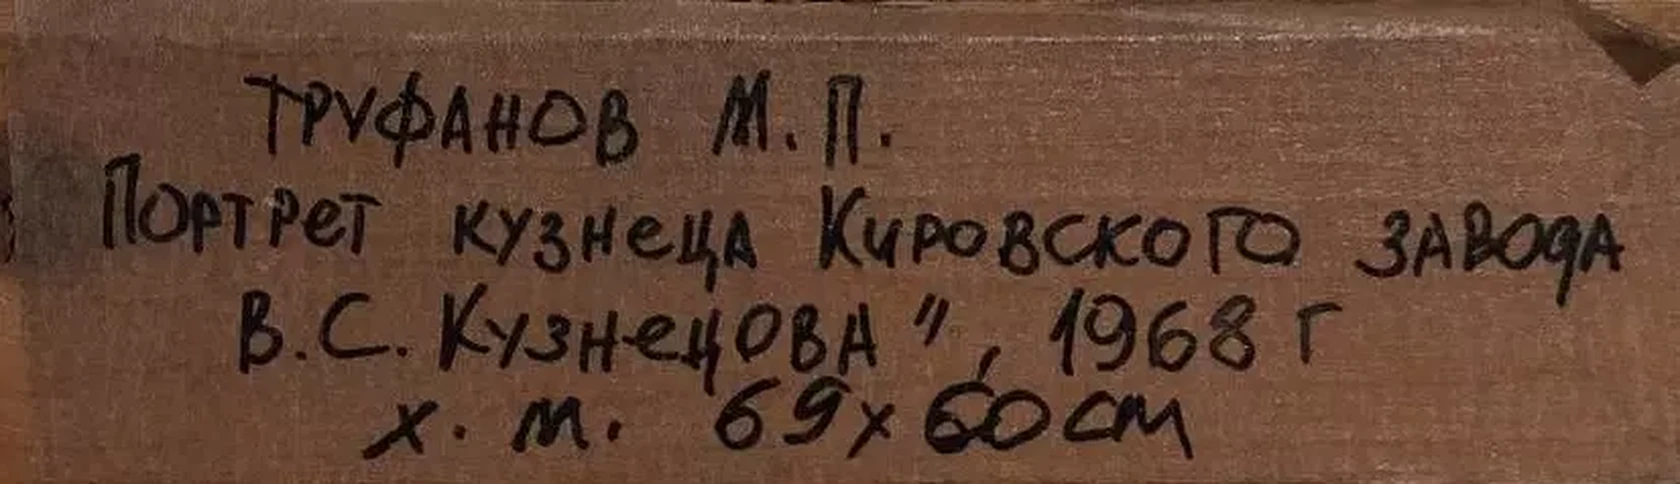 ТРУФАНОВ М.П.
Портрет кузнеца Кировского завода
В.С. Кузнецова", 1968 г
х. м. 69х60см